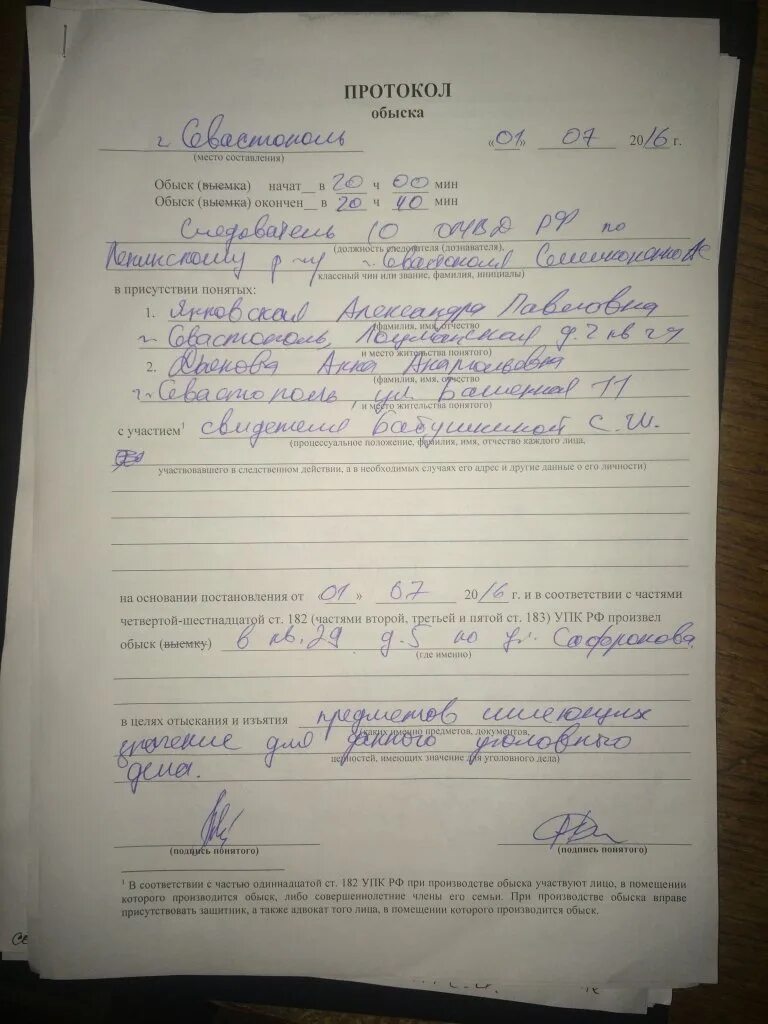 ПРОТОКОЛ
обыска
г. Севастополь «01» 07 2016 г.
(место составления)
Обыск (выемка) начат__ в 20 ч 00 мин
Обыск (выемка) окончен__ в 20 ч 40 мин
Следователь СО ОМВД РФ по
(должность следователя (дознавателя),
Ленинскому р-ну г. Севастополя
классный чин или звание, фамилия, инициалы)
в присутствии понятых:
1. Янковская Александра Павловна
(фамилия, имя, отчество
г. Севастополь, д. 2 кв
и место жительства понятого)
2. Анна Анатольевна
(фамилия, имя, отчество
г. Севастополь, ул. Башенная 11
и место жительства понятого)
с участием1 свидетеля Бабушкиной С. Ш.
(процессуальное положение, фамилия, имя, отчество каждого лица,
участвовавшего в следственном действии, а в необходимых случаях его адрес и другие данные о его личности)
на основании постановления от «01» 07 2016 г. и в соответствии с частями
четвертой-шестнадцатой ст. 182 (частями второй, третьей и пятой ст. 183) УПК РФ произвел
обыск (выемку) в кв. 29 д. 5 по ул. Сафронова
(где именно)
в целях отыскания и изъятия предметов имеющих
(каких именно предметов, документов,
значение для данного уголовного
ценностей, имеющих значение для уголовного дела)
дела.
(подпись понятого) (подпись понятого)
1 В соответствии с частью одиннадцатой ст. 182 УПК РФ при производстве обыска участвуют лицо, в помещении
которого производится обыск, либо совершеннолетние члены его семьи. При производстве обыска вправе
присутствовать защитник, а также адвокат того лица, в помещении которого производится обыск.